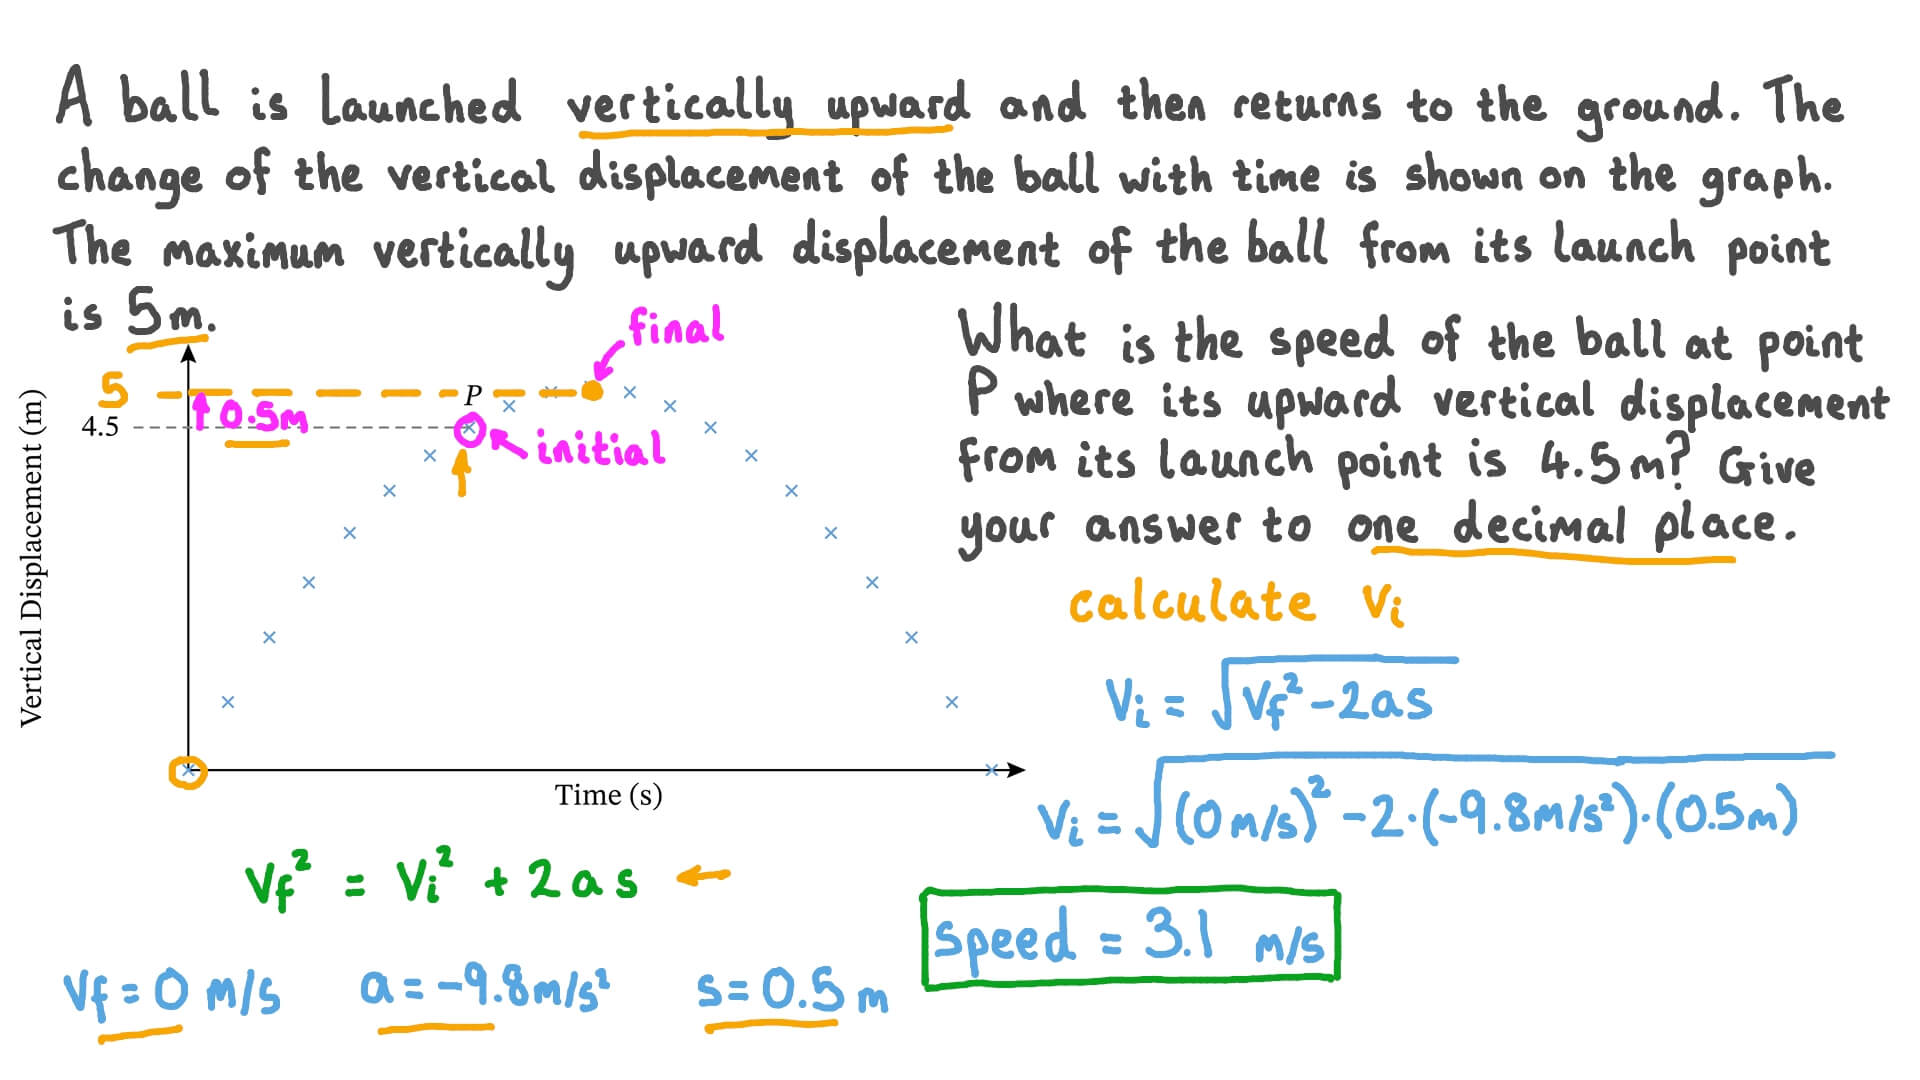 A ball is launched vertically upward and then returns to the ground. The
change of the vertical displacement of the ball with time is shown on the graph.
The maximum vertically upward displacement of the ball from its launch point
is 5m.
What is the speed of the ball at point
P where its upward vertical displacement
from its launch point is 4.5m? Give
your answer to one decimal place.
final
5
P
0.5m
4.5
initial
Vertical Displacement (m)
Time (s)
calculate Vi
Vi = √Vf² - 2as
Vi = √(0m/s)² - 2·(-9.8m/s²)·(0.5m)
Vf² = Vi² + 2as
Speed = 3.1 m/s
Vf = 0 m/s a = -9.8m/s² s = 0.5 m